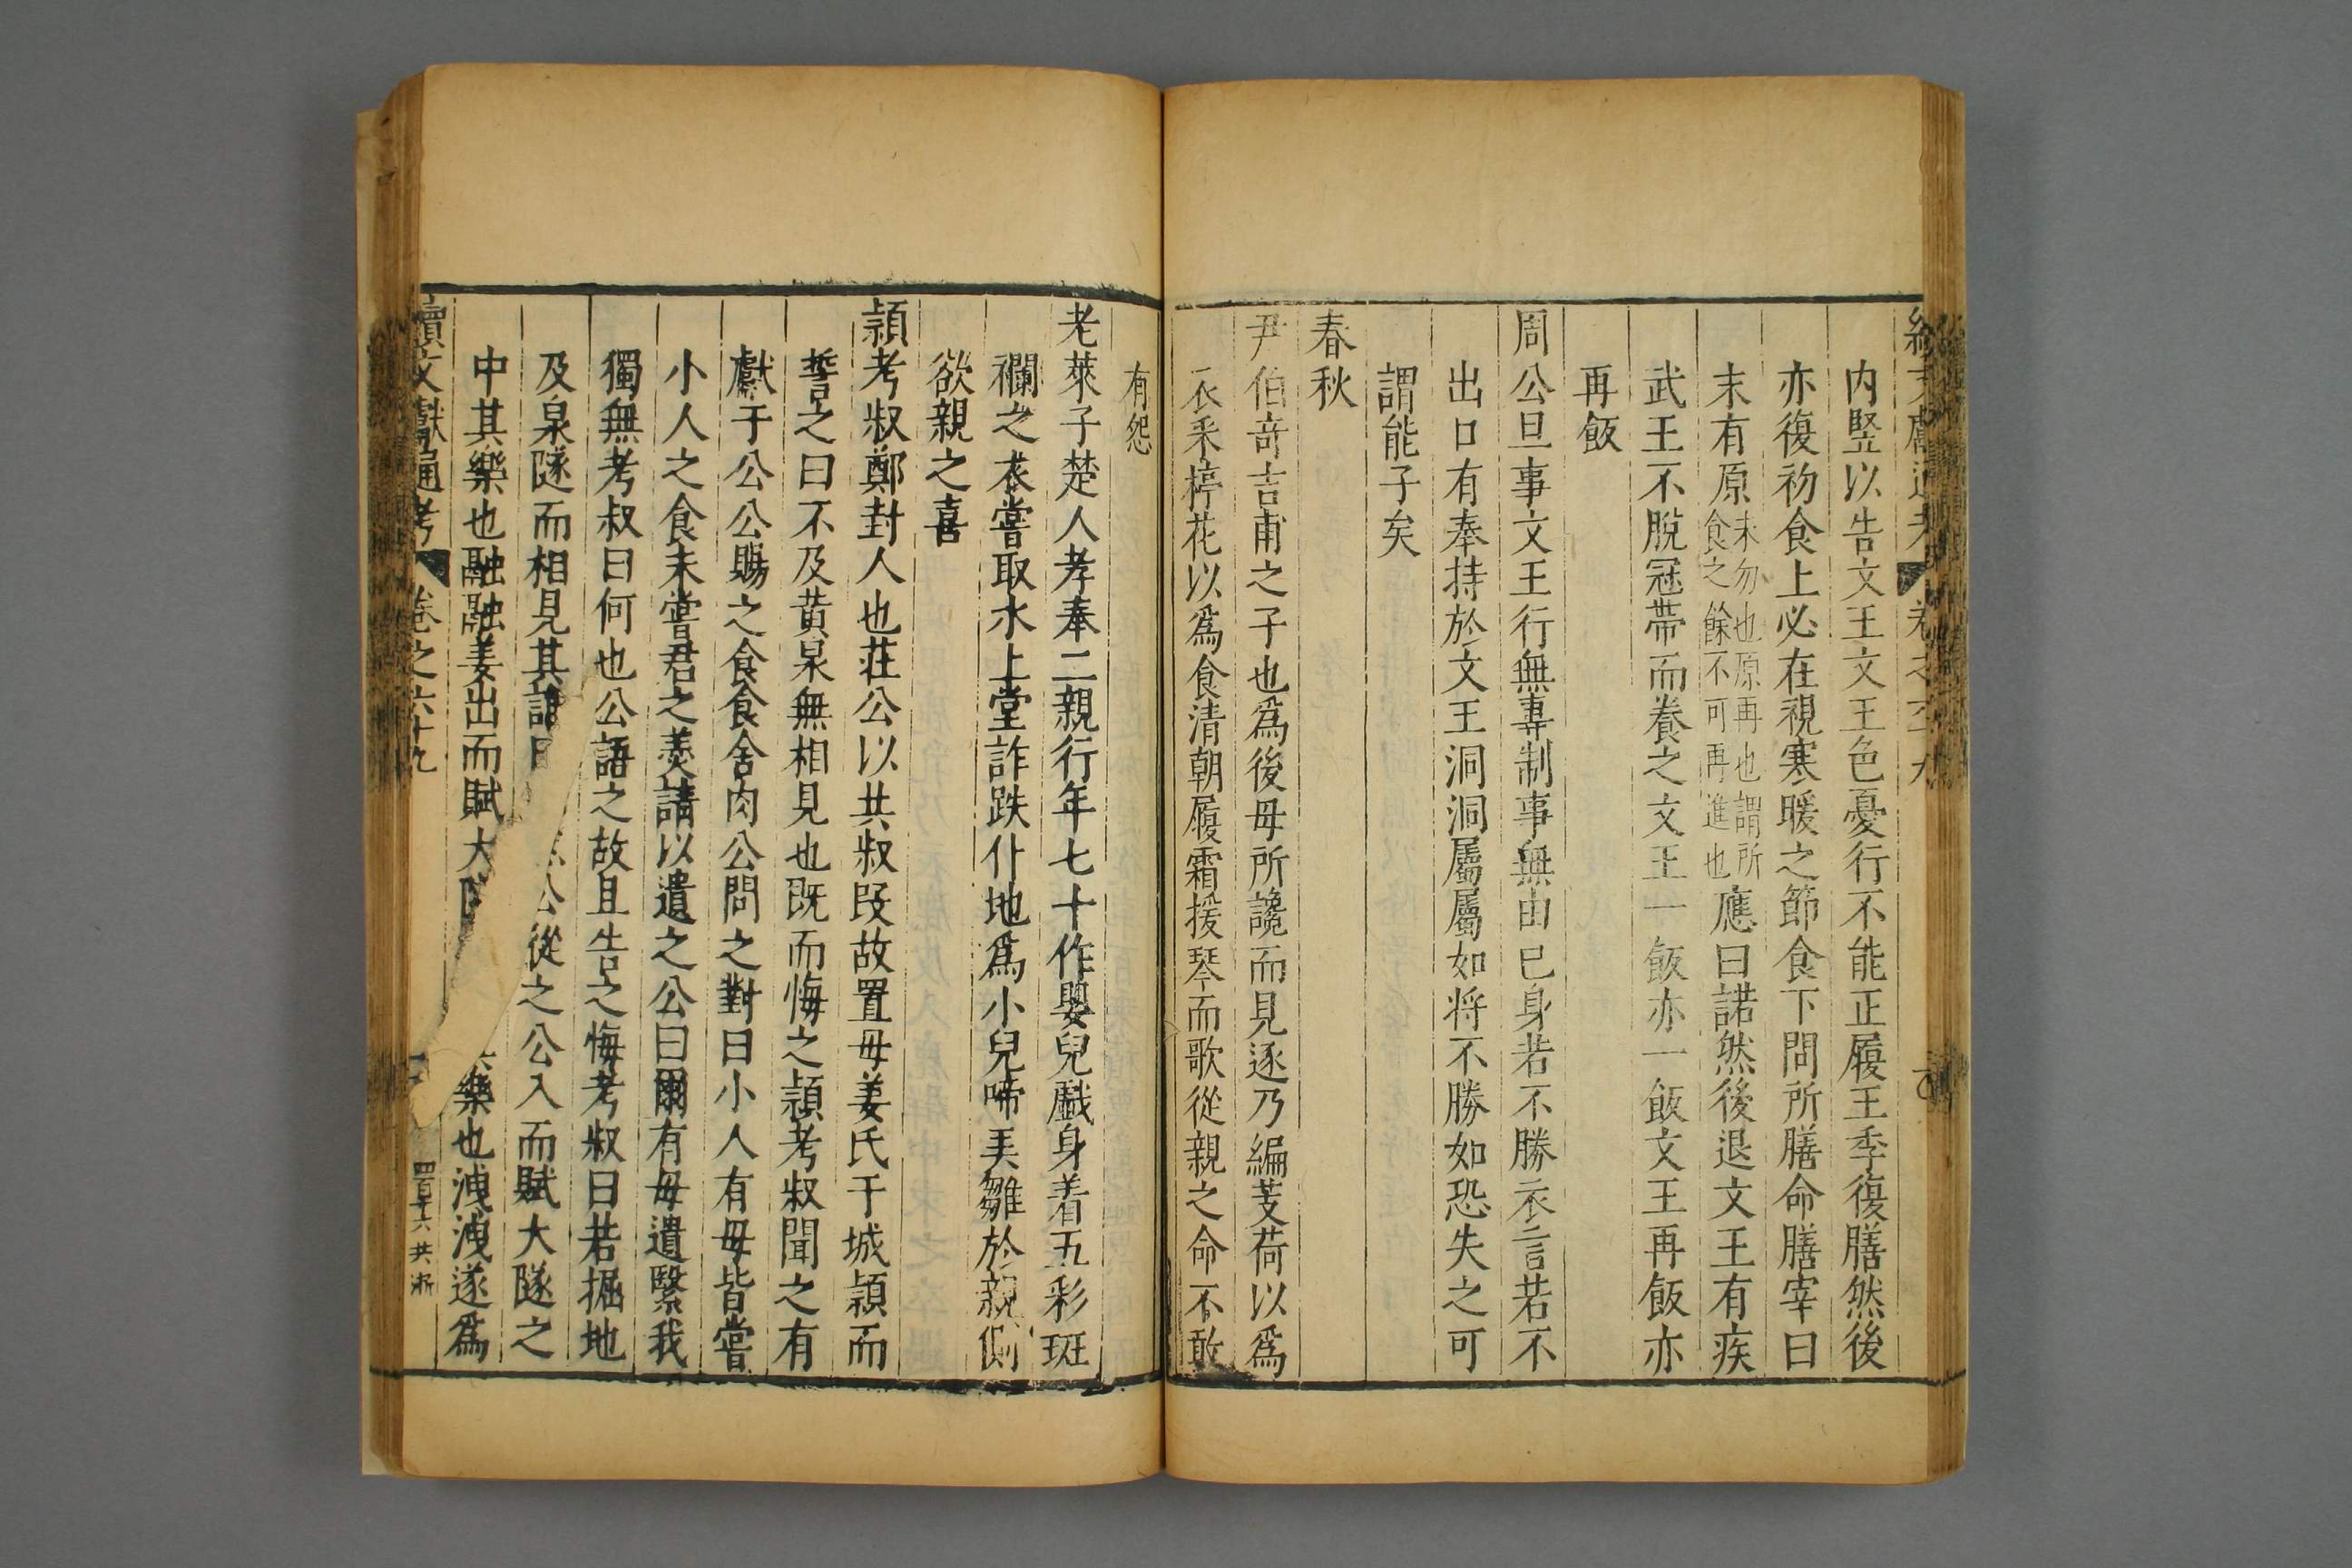 內竪以告文王文王色憂行不能正履王季復膳然後
亦復初食上必在視寒暖之節食下問所膳命膳宰曰
末有原末勿也原再也謂所食之餘不可再進也應曰諾然後退文王有疾
武王不脫冠帶而養之文王一飯亦一飯文王再飯亦
再飯
周公旦事文王行無專制事無由已身若不勝衣言若不
出口有奉持於文王洞洞屬屬如將不勝如恐失之可
謂能子矣
春秋
尹伯奇吉甫之子也爲後母所讒而見逐乃編芰荷以爲
衣采楟花以爲食清朝履霜援琴而歌從親之命不敢
有怨
老萊子楚人孝奉二親行年七十作嬰兒戲身着五彩斑
襴之衣嘗取水上堂詐跌仆地爲小兒啼弄雛於親側
欲親之喜
潁考叔鄭封人也莊公以共叔段故置母姜氏于城潁而
誓之曰不及黃泉無相見也既而悔之潁考叔聞之有
獻于公公賜之食食舍肉公問之對曰小人有母皆嘗
小人之食未嘗君之羹請以遺之公曰爾有母遺繄我
獨無考叔曰何也公語之故且告之悔考叔曰若掘地
及泉隧而相見其誰曰公從之公入而賦大隧之
中其樂也融融姜出而賦大樂也洩洩遂爲
續文獻通考 卷之六十九 共浙